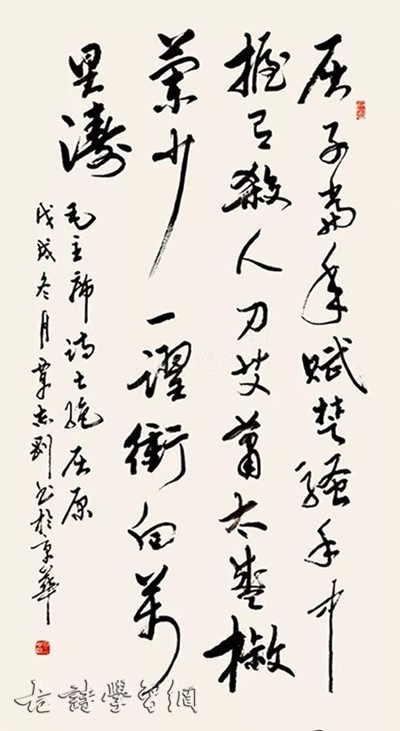 屈子當年賦楚騷手中
握有殺人刀艾蕭太盛椒
蘭少一躍衝向萬
里濤
毛主席詩七絕屈原
戊戌冬月覃志剛書於京華
詩學習網